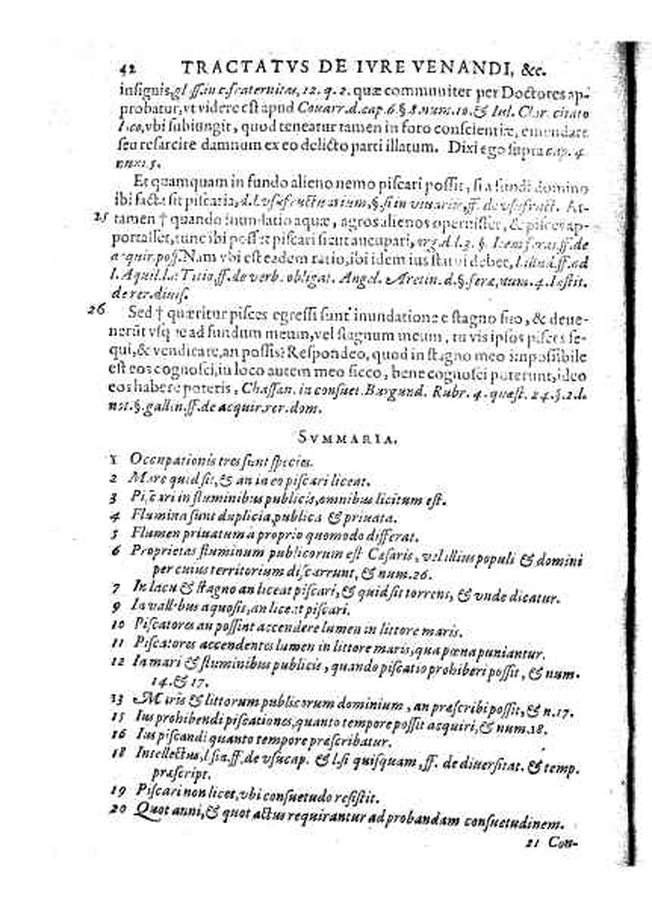 42 TRACTATVS DE IVRE VENANDI, &c.
insignis, gloss. in c. fraternitas, 12. q. 2. quæ communiter per Doctores ap-
probatur, vt videre est apud Couarr. d. cap. 6. §. 8. num. 10. & Iul. Clar. citato
loco, vbi subiungit, quod teneatur tamen in foro conscientiæ, emendare
seu resarcire damnum ex eo delicto parti illatum. Dixi ego supra cap. 4.
num. 5.
Et quamquam in fundo alieno nemo piscari possit, si a fundi domino
ibi facta sit piscaria, d. l. vsufructuarium, §. si in vinariis, ff. de vsufruct. At-
25 tamen † quando inundatio aquæ, agros alienos operuisset, & pisces ap-
portasset, tunc ibi posset piscari sicut aucupari, arg. d. l. 3. §. Item feras, ff. de
acquir. poss. Nam vbi est eadem ratio, ibi idem ius statui debet, l. illud, ff. ad
l. Aquil. l. a Titio, ff. de verb. obligat. Angel. Aretin. d. §. feræ, num. 4. Instit.
de rer. diuis.
26 Sed † quæritur pisces egressi sunt inundatione e stagno suo, & deue-
nerūt vsq; ad fundum meum, vel stagnum meum, tu vis ipsos pisces se-
qui, & vendicare, an possis? Respondeo, quod in stagno meo impossibile
est eos cognosci, in loco autem meo sicco, bene cognosci poterunt, ideo
eos habere poteris, Chassan. in consuet. Burgund. Rubr. 4. quæst. 24. §. 2. l.
not. §. gallin. ff. de acquir. rer. dom.
SVMMARIA.
1 Occupationis tres sunt species.
2 Mare quid sit, & an in eo piscari liceat.
3 Piscari in fluminibus publicis, omnibus licitum est.
4 Flumina sunt duplicia, publica & priuata.
5 Flumen priuatum a proprio quomodo differat.
6 Proprietas fluminum publicorum est Cæsaris, vel illius populi & domini
per cuius territorium discurrunt, & num. 26.
7 In lacu & stagno an liceat piscari, & quid sit torrens, & vnde dicatur.
9 In vallibus aquosis, an liceat piscari.
10 Piscatores an possint accendere lumen in littore maris.
11 Piscatores accendentes lumen in littore maris, qua pœna puniantur.
12 In mari & fluminibus publicis, quando piscatio prohiberi possit, & num.
14. & 17.
13 Maris & littorum publicorum dominium, an præscribi possit, & n. 17.
15 Ius prohibendi piscationes, quanto tempore possit acquiri, & num. 18.
16 Ius piscandi quanto tempore præscribatur.
18 Intellectus, l. fin. ff. de vsucap. & l. si quisquam, ff. de diuersitat. & temp.
præscript.
19 Piscari non licet, vbi consuetudo resistit.
20 Quot anni, & quot actus requirantur ad probandam consuetudinem.
21 Con-